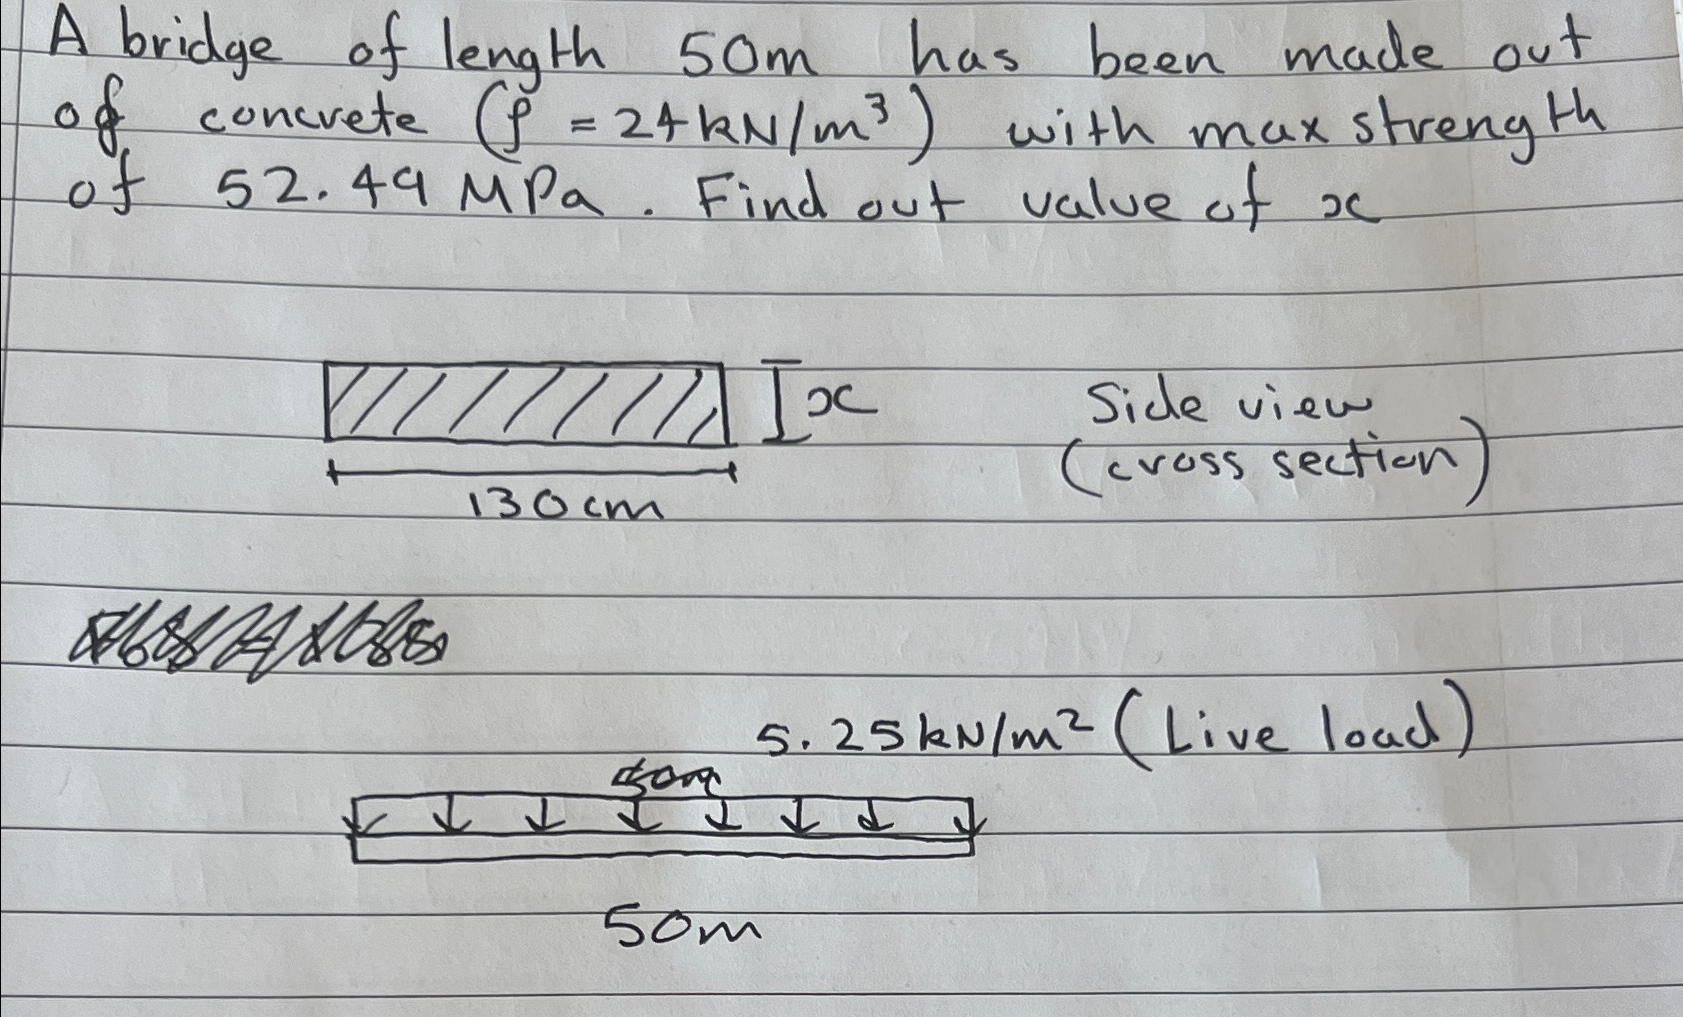 A bridge of length 50m has been made out
of concrete (ρ = 24kN/m³) with max strength
of 52.49 MPa. Find out value of x
x
Side view
(cross section)
130cm
5.25kN/m² (Live load)
50m